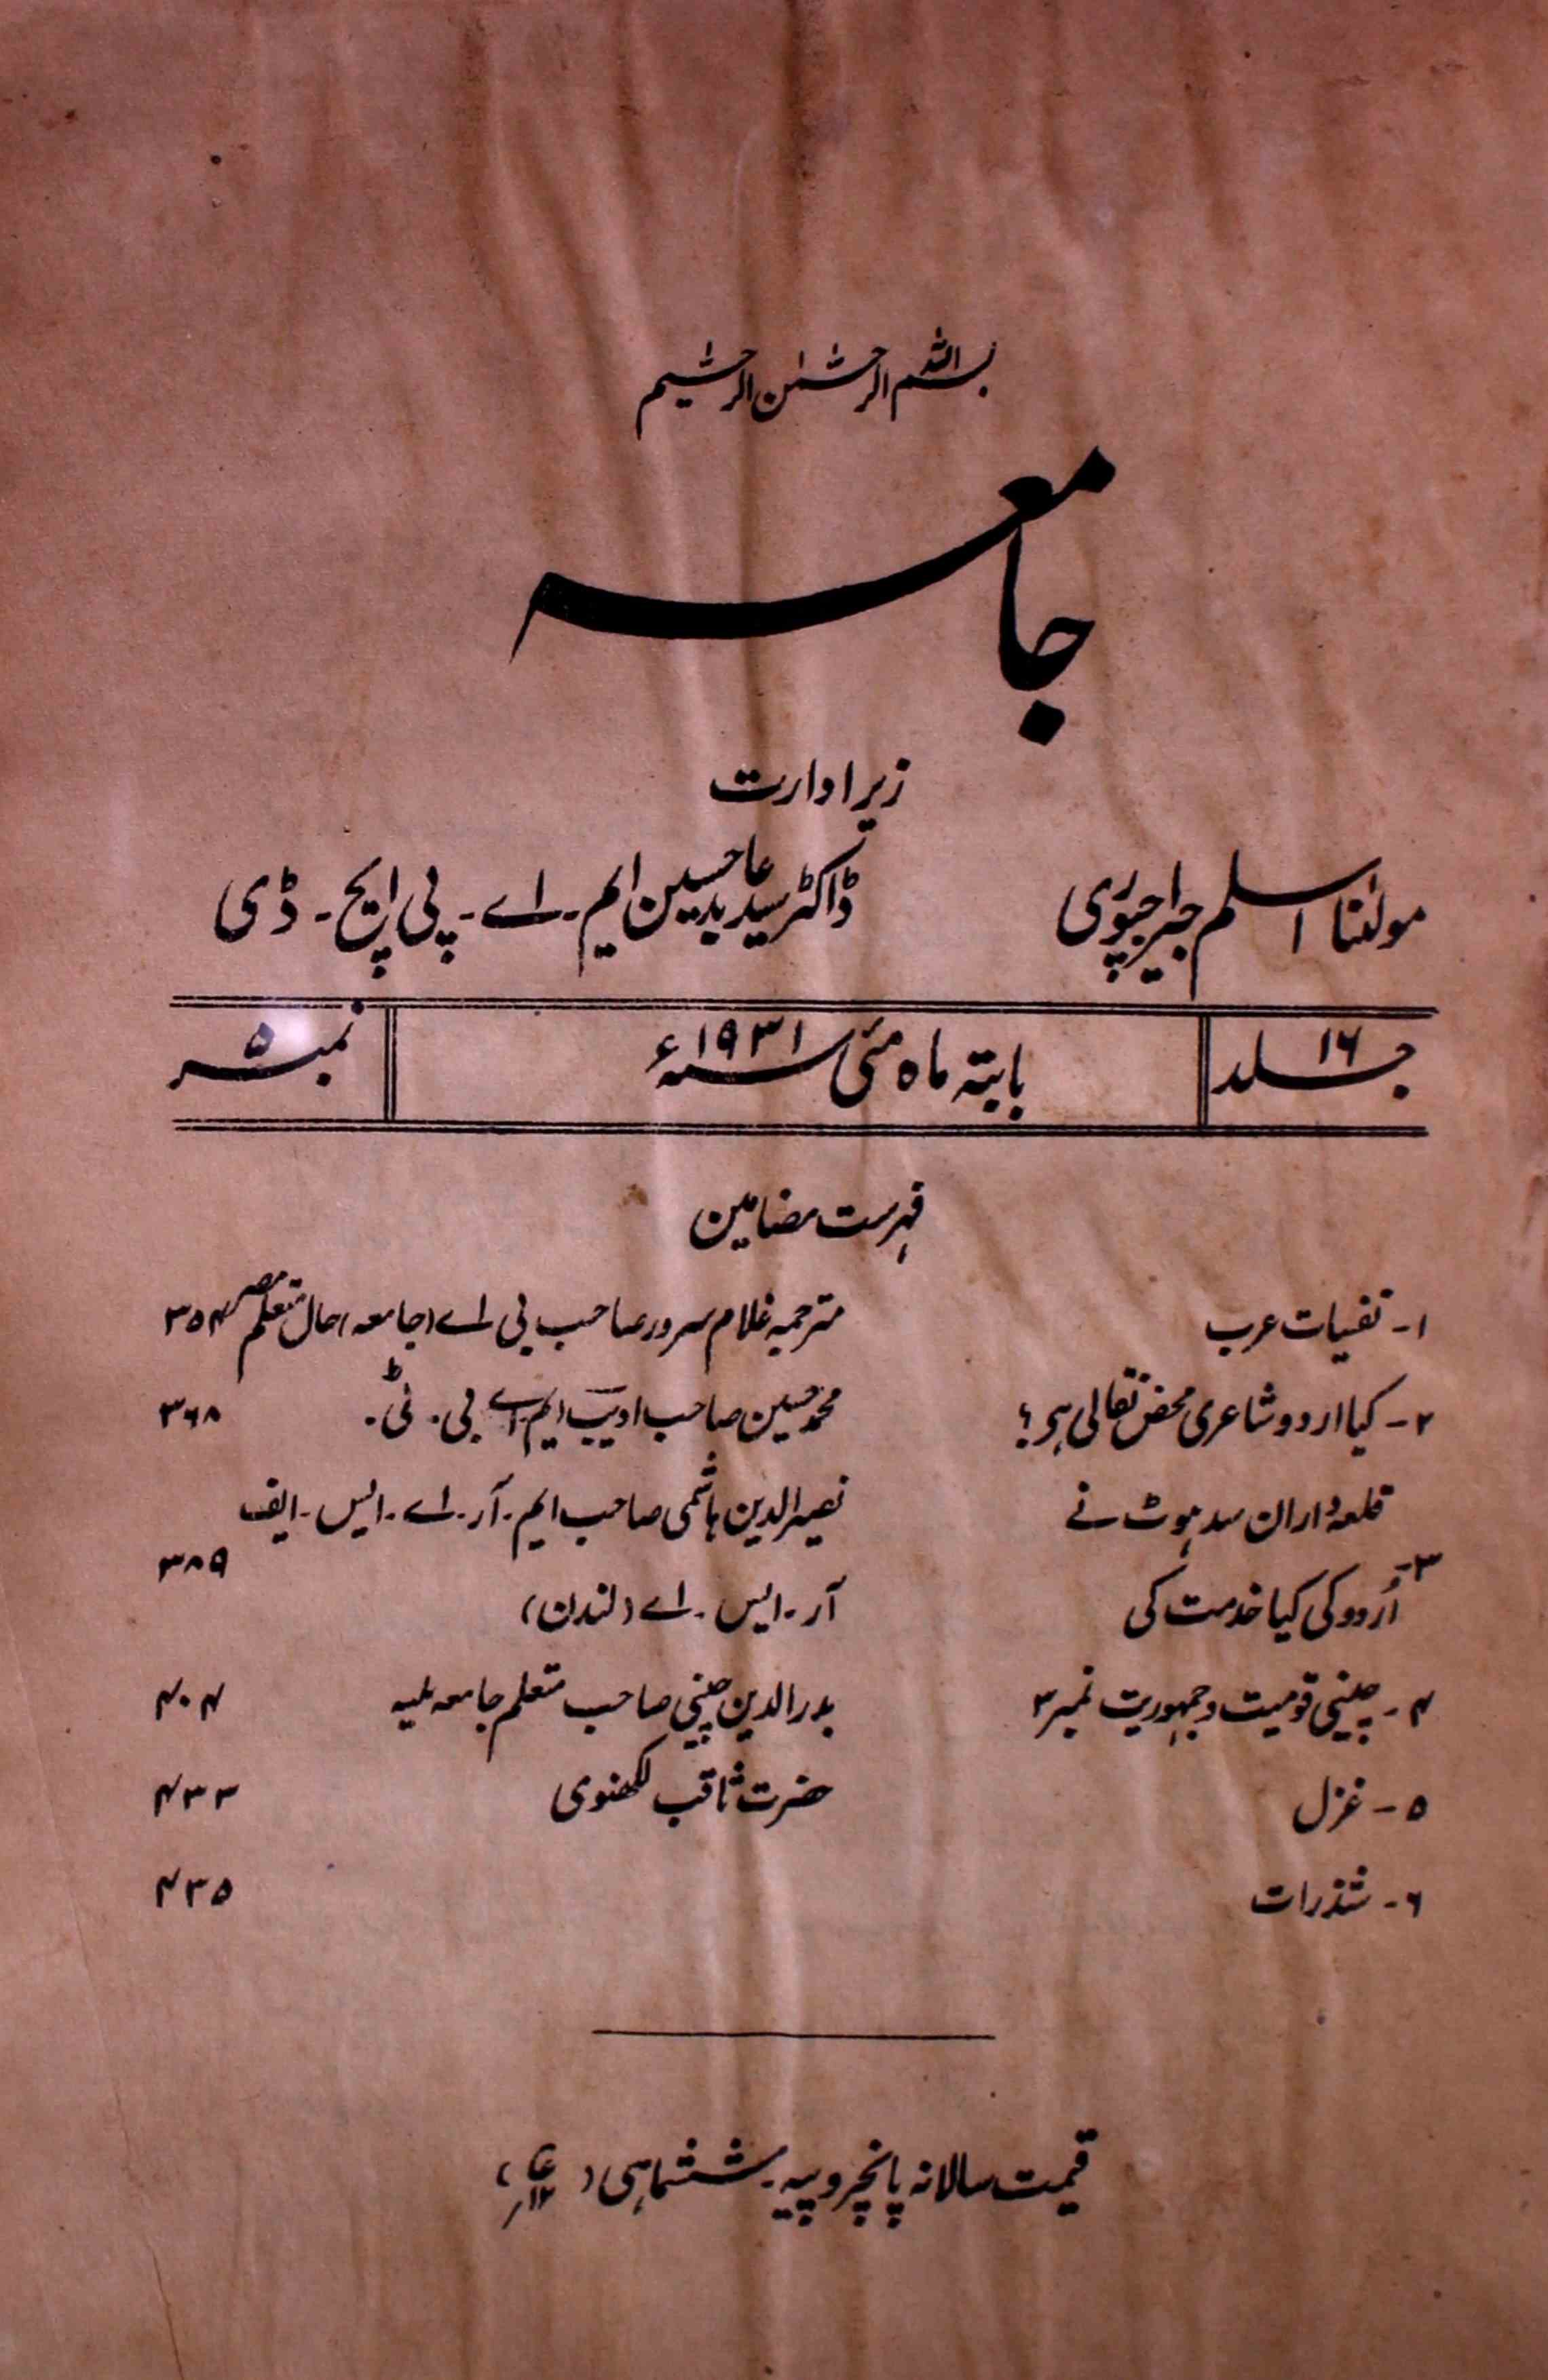 بسم اللہ الرحمٰن الرحیم
جامعہ
زیر ادارت
مولٰنا اسلم جیراجپوری ڈاکٹر سید عابد حسین ایم۔ اے۔ پی ایچ۔ ڈی
جلد ۱۶ بابتہ ماہ مئی سنہ ۱۹۳۱ء نمبر ۵
فہرست مضامین
۱۔ نفسیات عرب مترجمہ غلام سرور صاحب بی اے (جامعہ) حال متعلم مصر ۳۵۴
۲۔ کیا اردو شاعری محض نقالی ہی؟ محمد حسین صاحب ادیب ایم اے بی۔ ٹی۔ ۳۶۸
۳۔ قلعہ داران سدہوٹ نے نصیر الدین ہاشمی صاحب ایم۔ آر۔ اے۔ ایس۔ ایف ۳۸۹
اُردو کی کیا خدمت کی آر۔ ایس۔ اے (لندن)
۴۔ چینی قومیت و جمہوریت نمبر ۳ بدر الدین چینی صاحب متعلم جامعہ ملیہ ۴۰۴
۵۔ غزل حضرت ثاقب لکھنوی ۴۳۳
۶۔ شذرات ۴۳۵
قیمت سالانہ پانچروپیہ۔ ششماہی